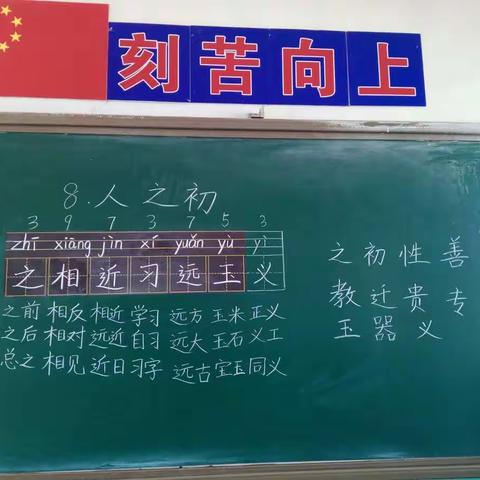 刻苦向上
8.人之初
3 9 7 3 7 5 3
zhī xiāng jìn xí yuǎn yù yì
之 相 近 习 远 玉 义
之前 相反 相近 学习 远方 玉米 正义
之后 相对 远近 自习 远大 玉石 义工
总之 相见 近日 习字 远古 宝玉 同义
之 初 性 善
教 迁 贵 专
玉 器 义